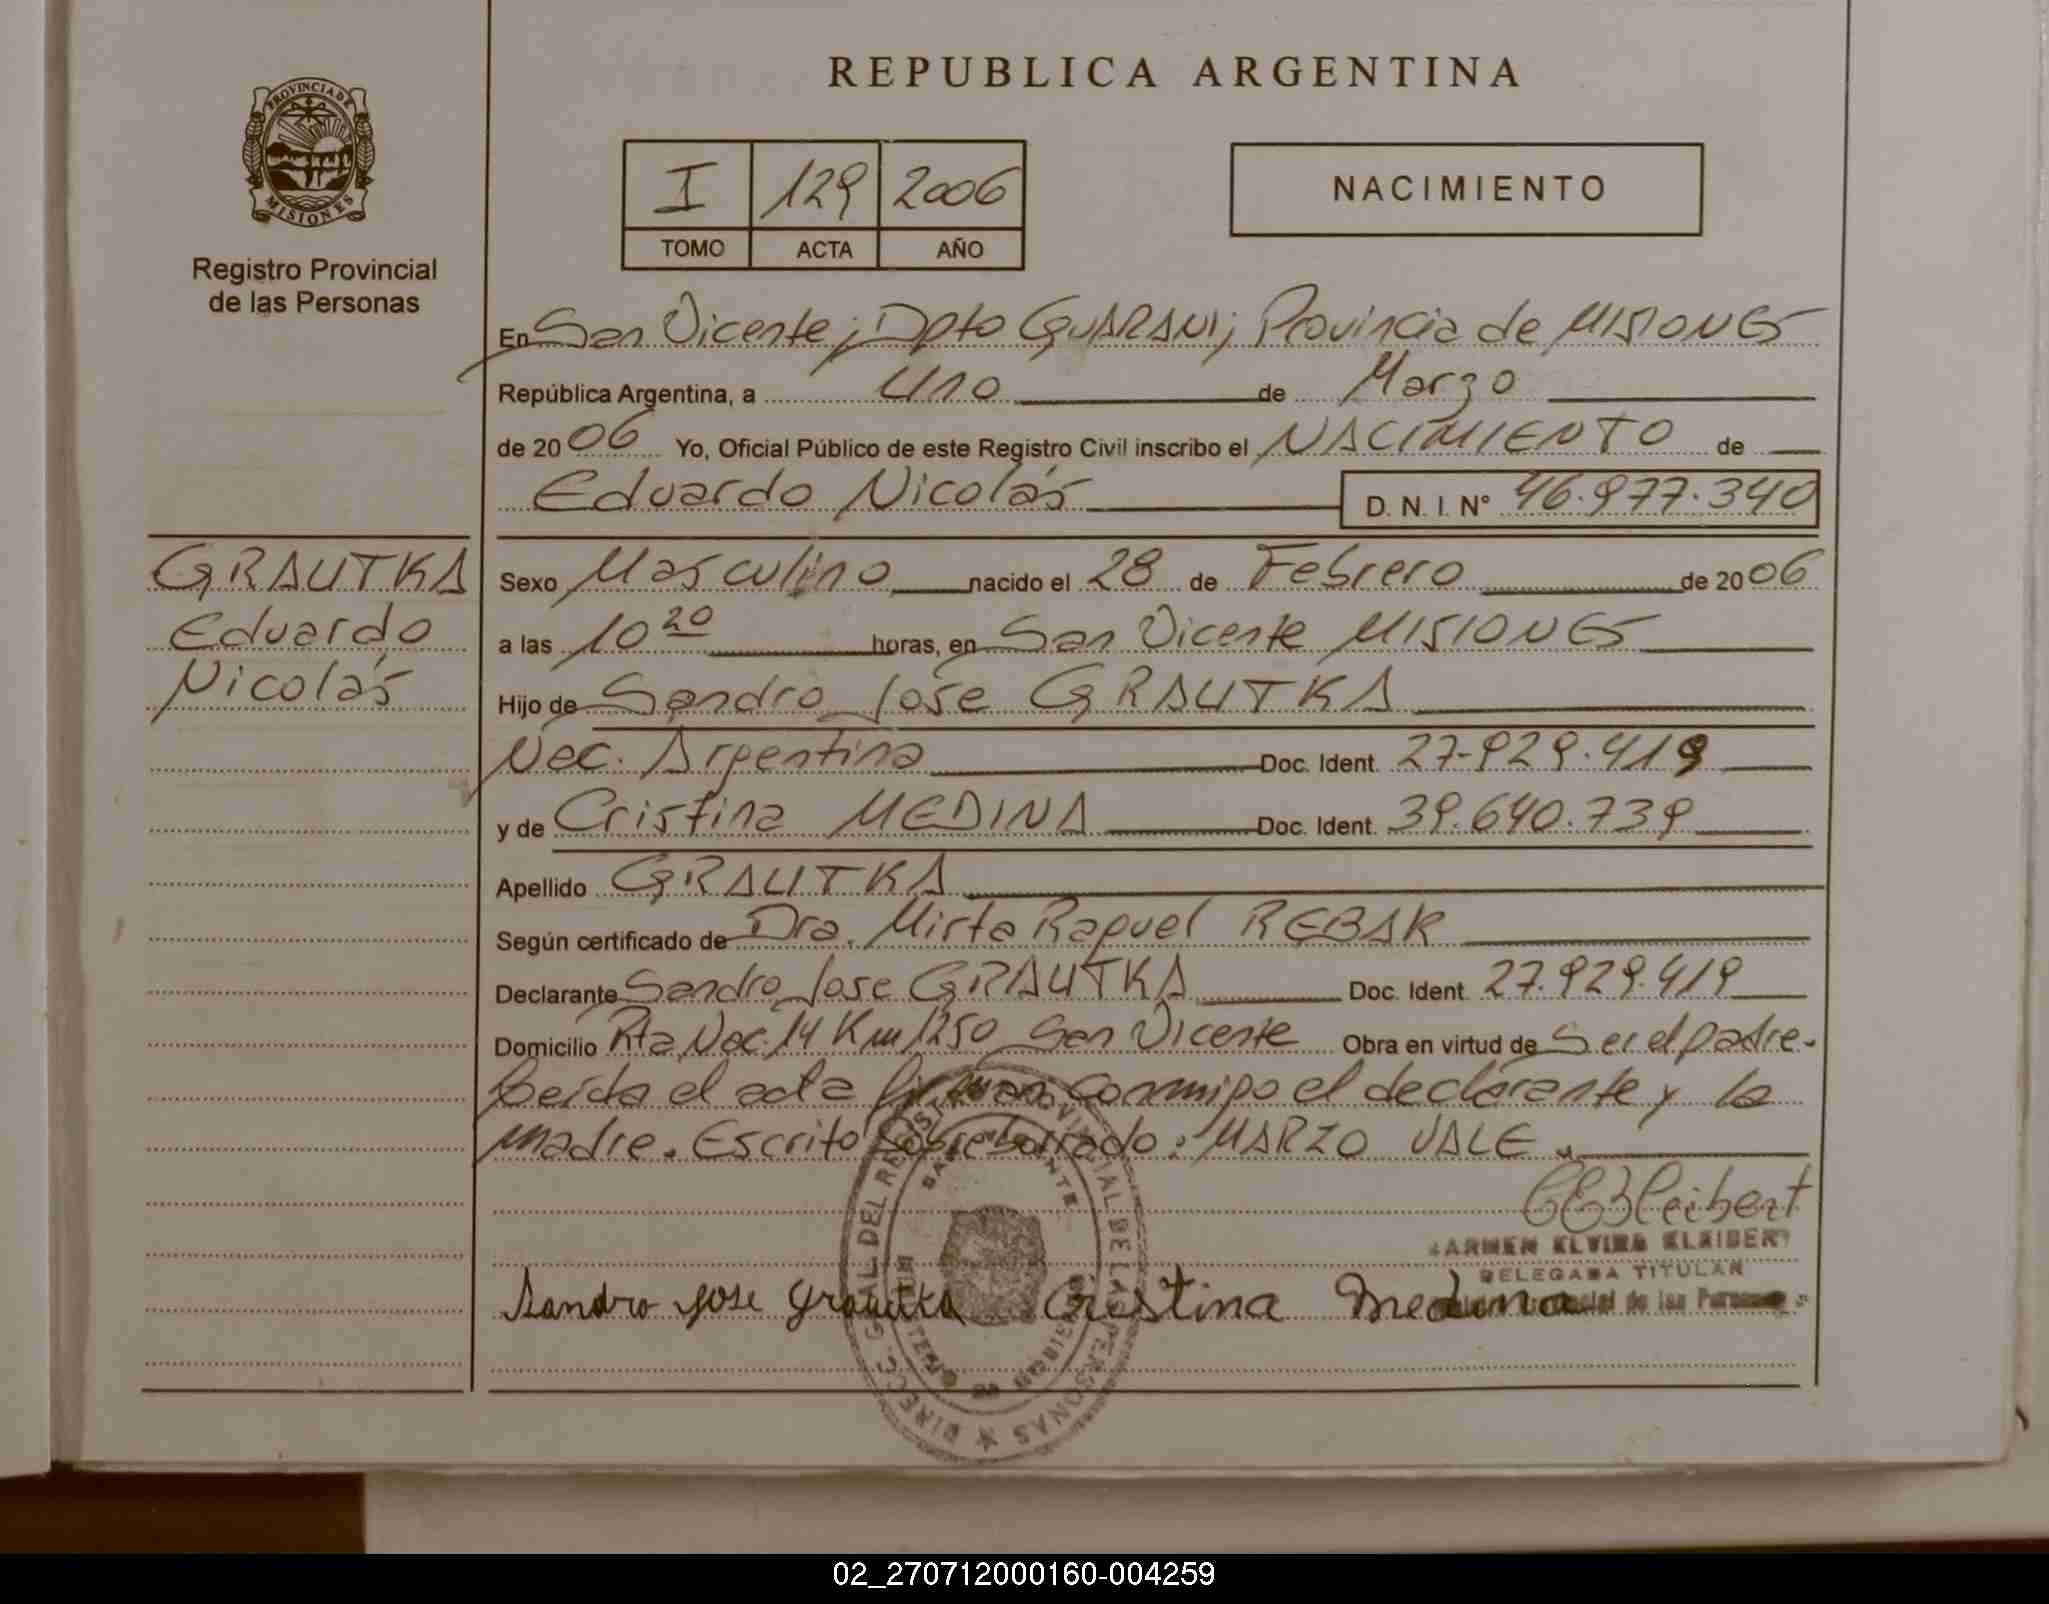 REPUBLICA ARGENTINA
PROVINCIA DE
MISIONES
Registro Provincial
de las Personas
I 129 2006
TOMO ACTA AÑO
NACIMIENTO
En San Vicente; Dpto GUARANI; Provincia de MISIONES
República Argentina, a Uno de Marzo
de 2006 Yo, Oficial Público de este Registro Civil inscribo el NACIMIENTO de
Eduardo Nicolás D. N. I. N° 46.977.340
GRAUTKA
Eduardo
Nicolás
Sexo Masculino nacido el 28 de Febrero de 2006
a las 10 20 horas, en San Vicente MISIONES
Hijo de Sandro Jose GRAUTKA
Nac. Argentina Doc. Ident. 27.929.419
y de Cristina MEDINA Doc. Ident. 39.640.739
Apellido GRAUTKA
Según certificado de Dra. Mirta Raquel REBAK
Declarante Sandro Jose GRAUTKA Doc. Ident. 27.929.419
Domicilio Rta Nac. 14 Km 1250 San Vicente Obra en virtud de Ser el padre.
Leída el acta firman conmigo el declarante y la
madre. Escrito sobreborrado: MARZO VALE
CARMEN ELVIRA KLAIBER
DELEGADA TITULAR
de las Personas
Sandro Jose Grautka Cristina Medina
DIRECC. GRAL. DEL REGISTRO PROVINCIAL DE LAS PERSONAS
SAN VICENTE
02_270712000160-004259